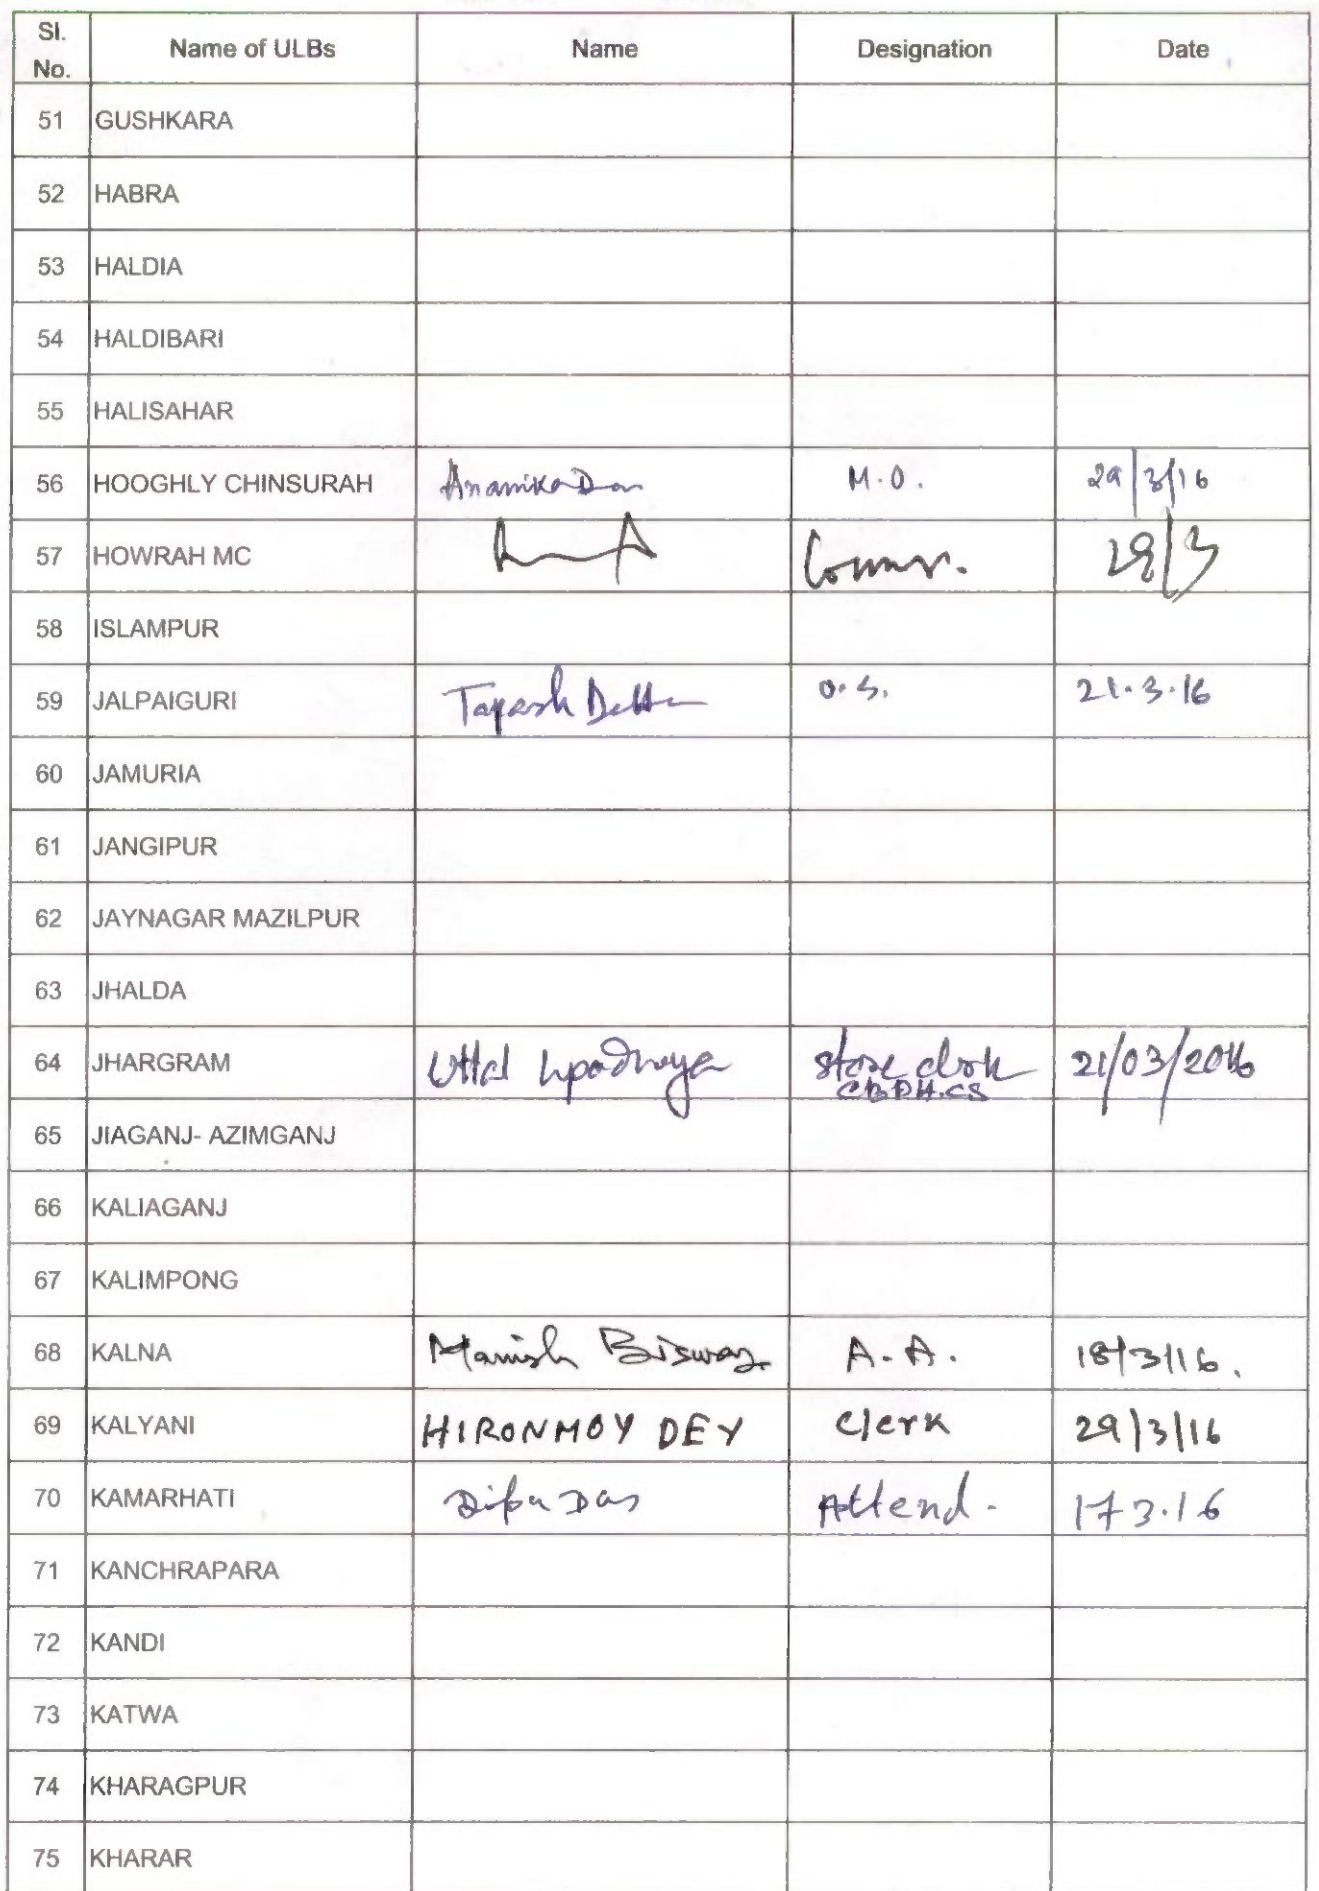 Sl. No. Name of ULBs Name Designation Date
51 GUSHKARA
52 HABRA
53 HALDIA
54 HALDIBARI
55 HALISAHAR
56 HOOGHLY CHINSURAH Anamika Das M.O. 29/3/16
57 HOWRAH MC 29/3
58 ISLAMPUR
59 JALPAIGURI Tapash Dutta O.S. 21.3.16
60 JAMURIA
61 JANGIPUR
62 JAYNAGAR MAZILPUR
63 JHALDA
64 JHARGRAM Uttal Upadhyya store clerk 21/03/2016
CBPH.CS
65 JIAGANJ- AZIMGANJ
66 KALIAGANJ
67 KALIMPONG
68 KALNA Manish Biswas A.A. 18/3/16.
69 KALYANI HIRONMOY DEY Clerk 29/3/16
70 KAMARHATI Dipa Das Attend. 17 3.16
71 KANCHRAPARA
72 KANDI
73 KATWA
74 KHARAGPUR
75 KHARAR